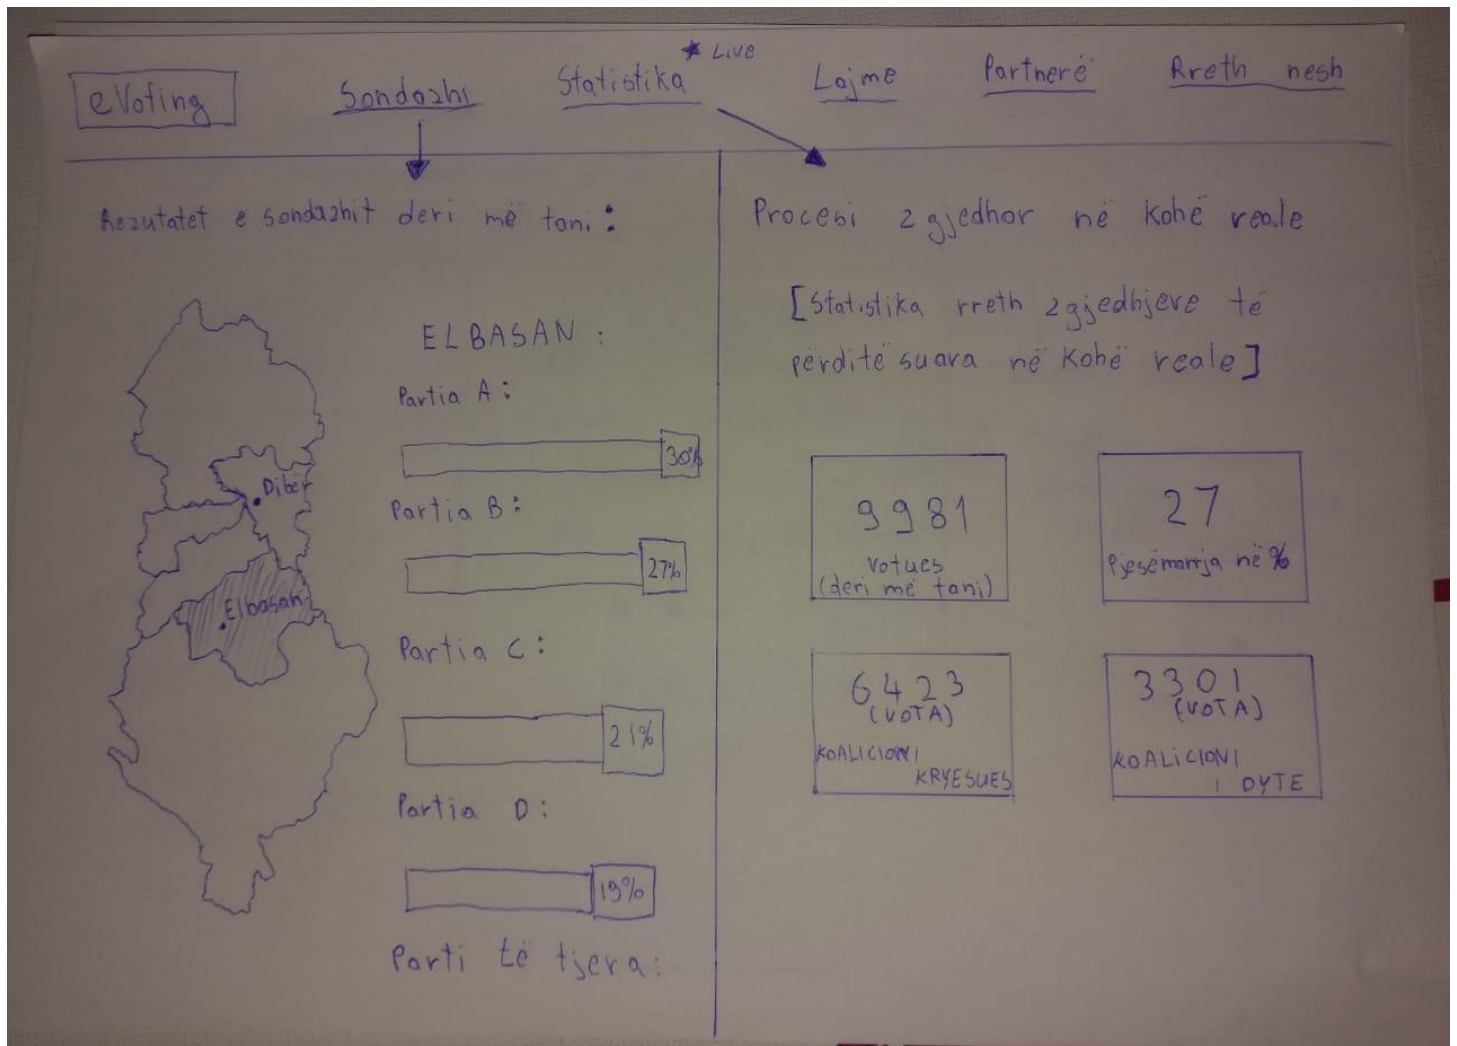 eVoting Sondazhi Statistika * Live Lajme Partnerë Rreth nesh
Rezutatet e sondazhit deri më tani:
ELBASAN :
Partia A:
30%
Partia B:
27%
Partia C:
21%
Partia D:
19%
Parti të tjera:
Dibër
Elbasan
Procesi zgjedhor në kohë reale
[Statistika rreth zgjedhjeve të
përditësuara në kohë reale]
9981
Votues
(deri më tani)
27
Pjesëmarrja në %
6423
(VOTA)
KOALICIONI
KRYESUES
3301
(VOTA)
KOALICIONI
I DYTE